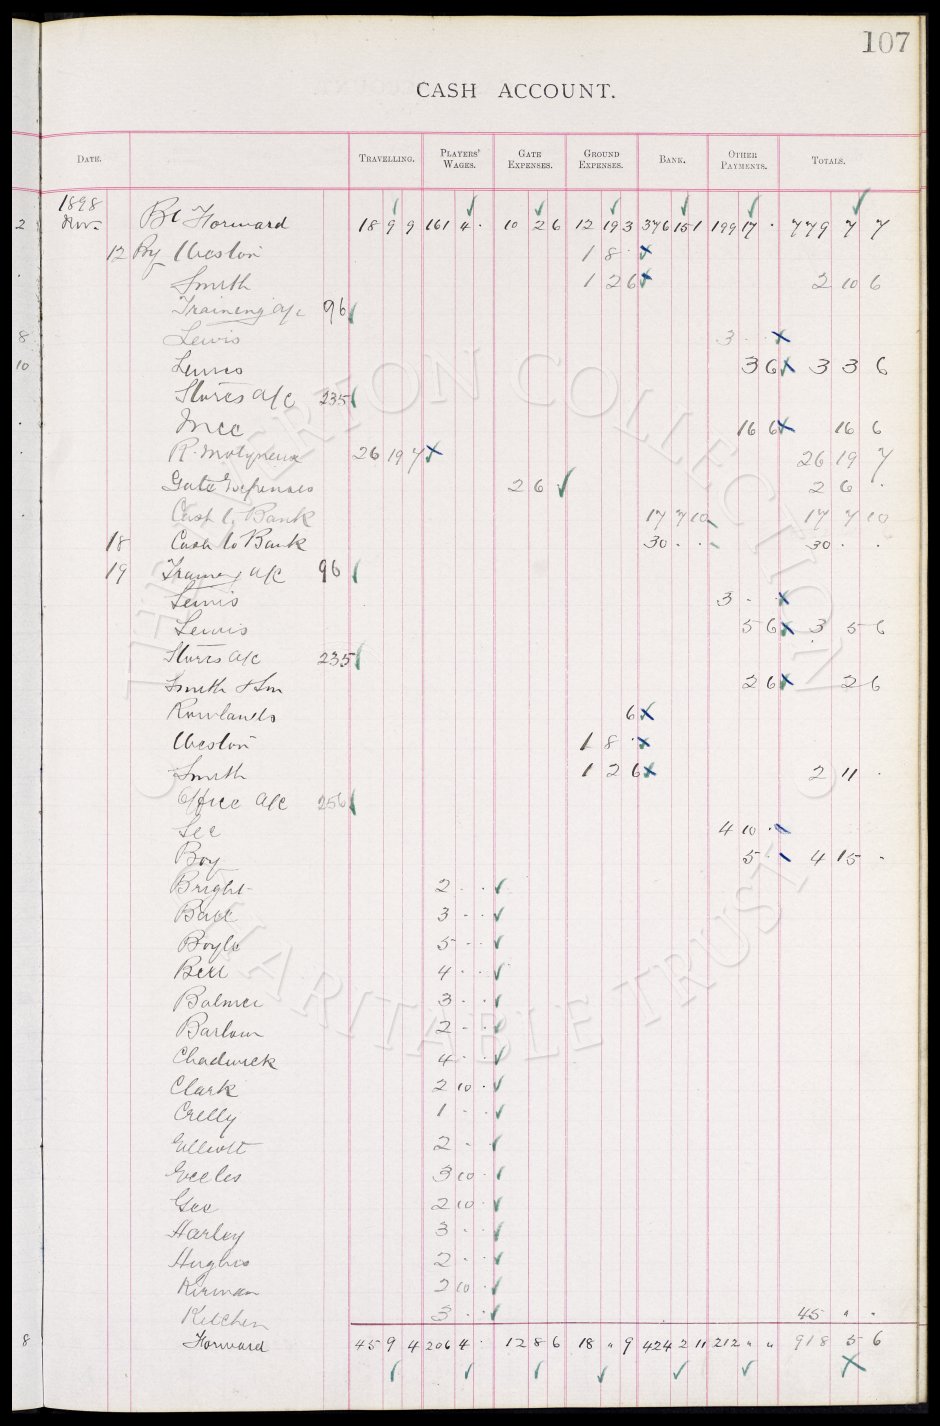 107
CASH ACCOUNT.
DATE. TRAVELLING. PLAYERS' WAGES. GATE EXPENSES. GROUND EXPENSES. BANK. OTHER PAYMENTS. TOTALS.
1898
2 Nov. Bt Forward 18 9 9 161 4 . 10 2 6 12 19 3 376 15 1 199 17 . 779 7 7
12 By Weston 1 8 .
Smith 1 2 6 2 10 6
Training a/c 96
8 Lewis 3 . .
10 Lewis 3 6 3 3 6
Stores a/c 235
Mee 16 6 16 6
R. Molyneux 26 19 7 26 19 7
Gate Expenses 2 6 . 2 6 .
Cash to Bank 17 7 10 17 7 10
18 Cash to Bank 30 . . 30 . .
19 Training a/c 96
Lewis 3 . .
Lewis 5 6 3 5 6
Stores a/c 235
Smith & Son 2 6 2 6
Rowlands 6
Weston 1 8 .
Smith 1 2 6 2 11 .
Office a/c 256
Lee 4 10 .
Boy 5 . 4 15 .
Bright 2 . .
Ball 3 . .
Boyle 5 . .
Bell 4 . .
Balmer 3 . .
Barlow 2 . .
Chadwick 4 . .
Clark 2 10 .
Crelly 1 . .
Elliott 2 . .
Eccles 3 10 .
Gee 2 10 .
Harley 3 . .
Hughes 2 . .
Kirwan 2 10 .
Kitchen 3 . . 45 " .
8 Forward 45 9 4 206 4 . 12 8 6 18 " 9 424 2 11 212 " " 918 5 6
THE EVERTON COLLECTION
CHARITABLE TRUST
©